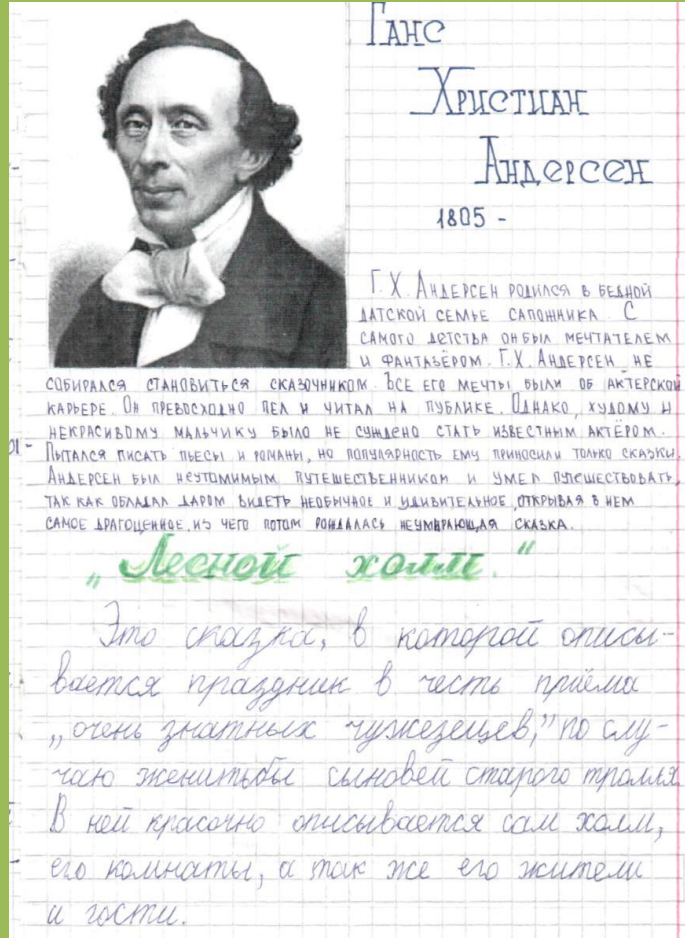 Ганс
Христиан
Андерсен
1805 -
Г. Х. Андерсен родился в бедной
датской семье сапожника. С
самого детства он был мечтателем
и фантазёром. Г. Х. Андерсен не
собирался становиться сказочником. Все его мечты были об актерской
карьере. Он превосходно пел и читал на публике. Однако, худому и
некрасивому мальчику было не суждено стать известным актёром.
Пытался писать пьесы и романы, но популярность ему приносили только сказки.
Андерсен был неутомимым путешественником и умел путешествовать,
так как обладал даром видеть необычное и удивительное, открывая в нем
самое драгоценное, из чего потом рождалась неумирающая сказка.
„Лесной холм."
Это сказка, в которой описы-
вается праздник в честь приёма
„очень знатных чужезецев," по слу-
чаю женитьбы сыновей старого тролля.
В ней красочно описывается сам холм,
его комнаты, а так же его жители
и гости.